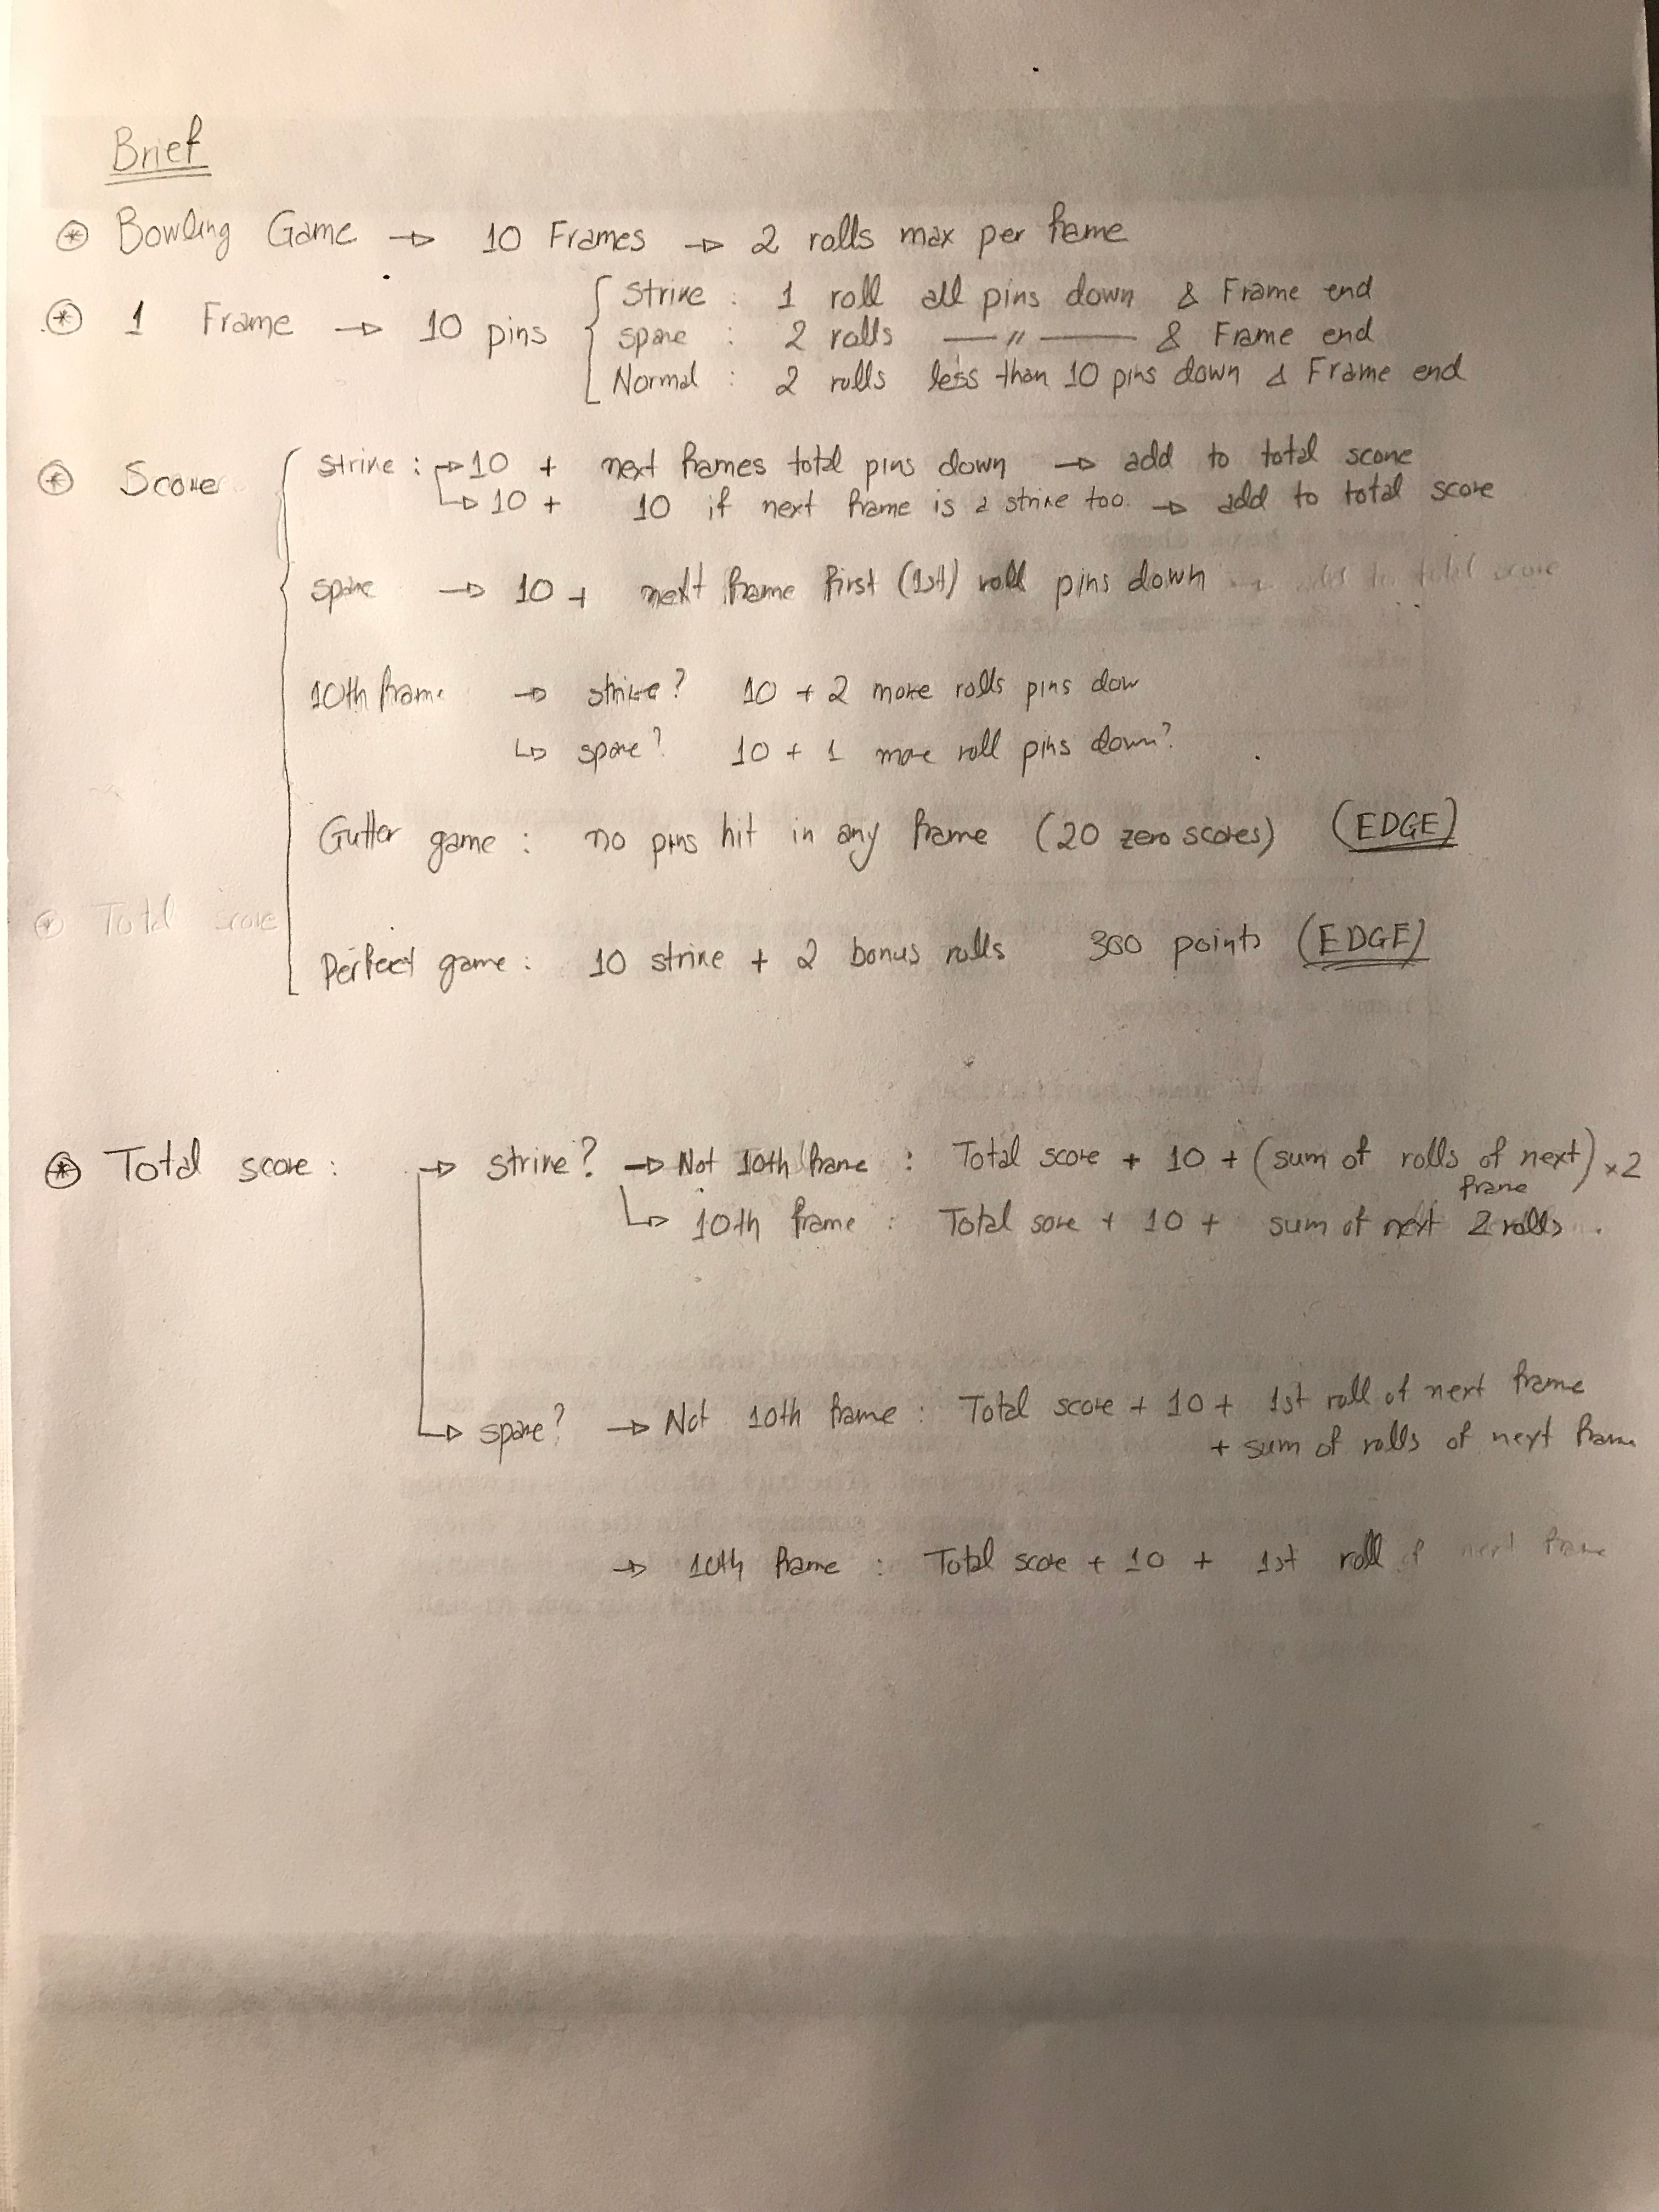 Brief
* Bowling Game → 10 Frames → 2 rolls max per frame
* 1 Frame → 10 pins
Strike : 1 roll all pins down & Frame end
Spare : 2 rolls —— " —— & Frame end
Normal : 2 rolls less than 10 pins down & Frame end
* Score
Strike : → 10 + next frames total pins down → add to total score
→ 10 + 10 if next frame is a strike too. → add to total score
spare → 10 + next frame first (1st) roll pins down → add to total score
10th frame → strike? 10 + 2 more rolls pins dow
↳ spare? 10 + 1 more roll pins down?
Gutter game : no pins hit in any frame (20 zero scores) (EDGE)
* Total score
Perfect game : 10 strike + 2 bonus rolls 300 points (EDGE)
* Total score : → strike? → Not 10th frame : Total score + 10 + (sum of rolls of next frame) ×2
↳ 10th frame : Total sore + 10 + sum of next 2 rolls .
↳ spare? → Not 10th frame : Total score + 10 + 1st roll of next frame
+ sum of rolls of next frame
→ 10th frame : Total score + 10 + 1st roll of next frame